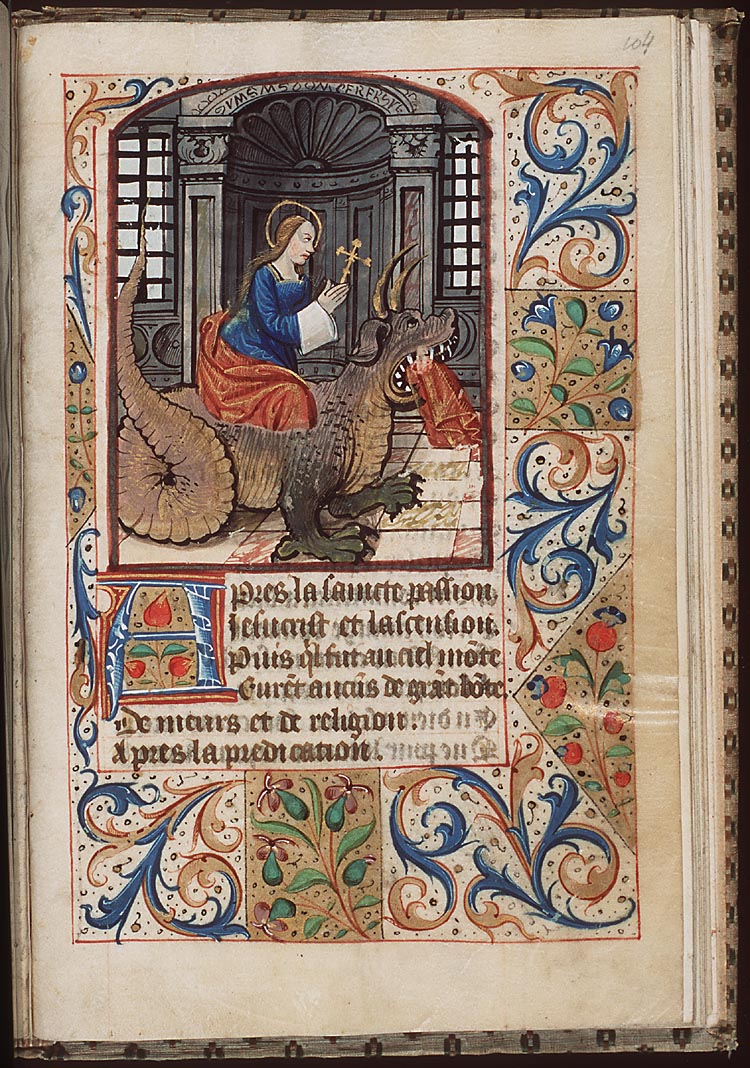 104
Apres la saincte passion
Jesucrist et lascension.
Puis ql fut au ciel mõte
Eurẽt aucũs de grãt bõte
De meurs et de religion.
Apres la predication